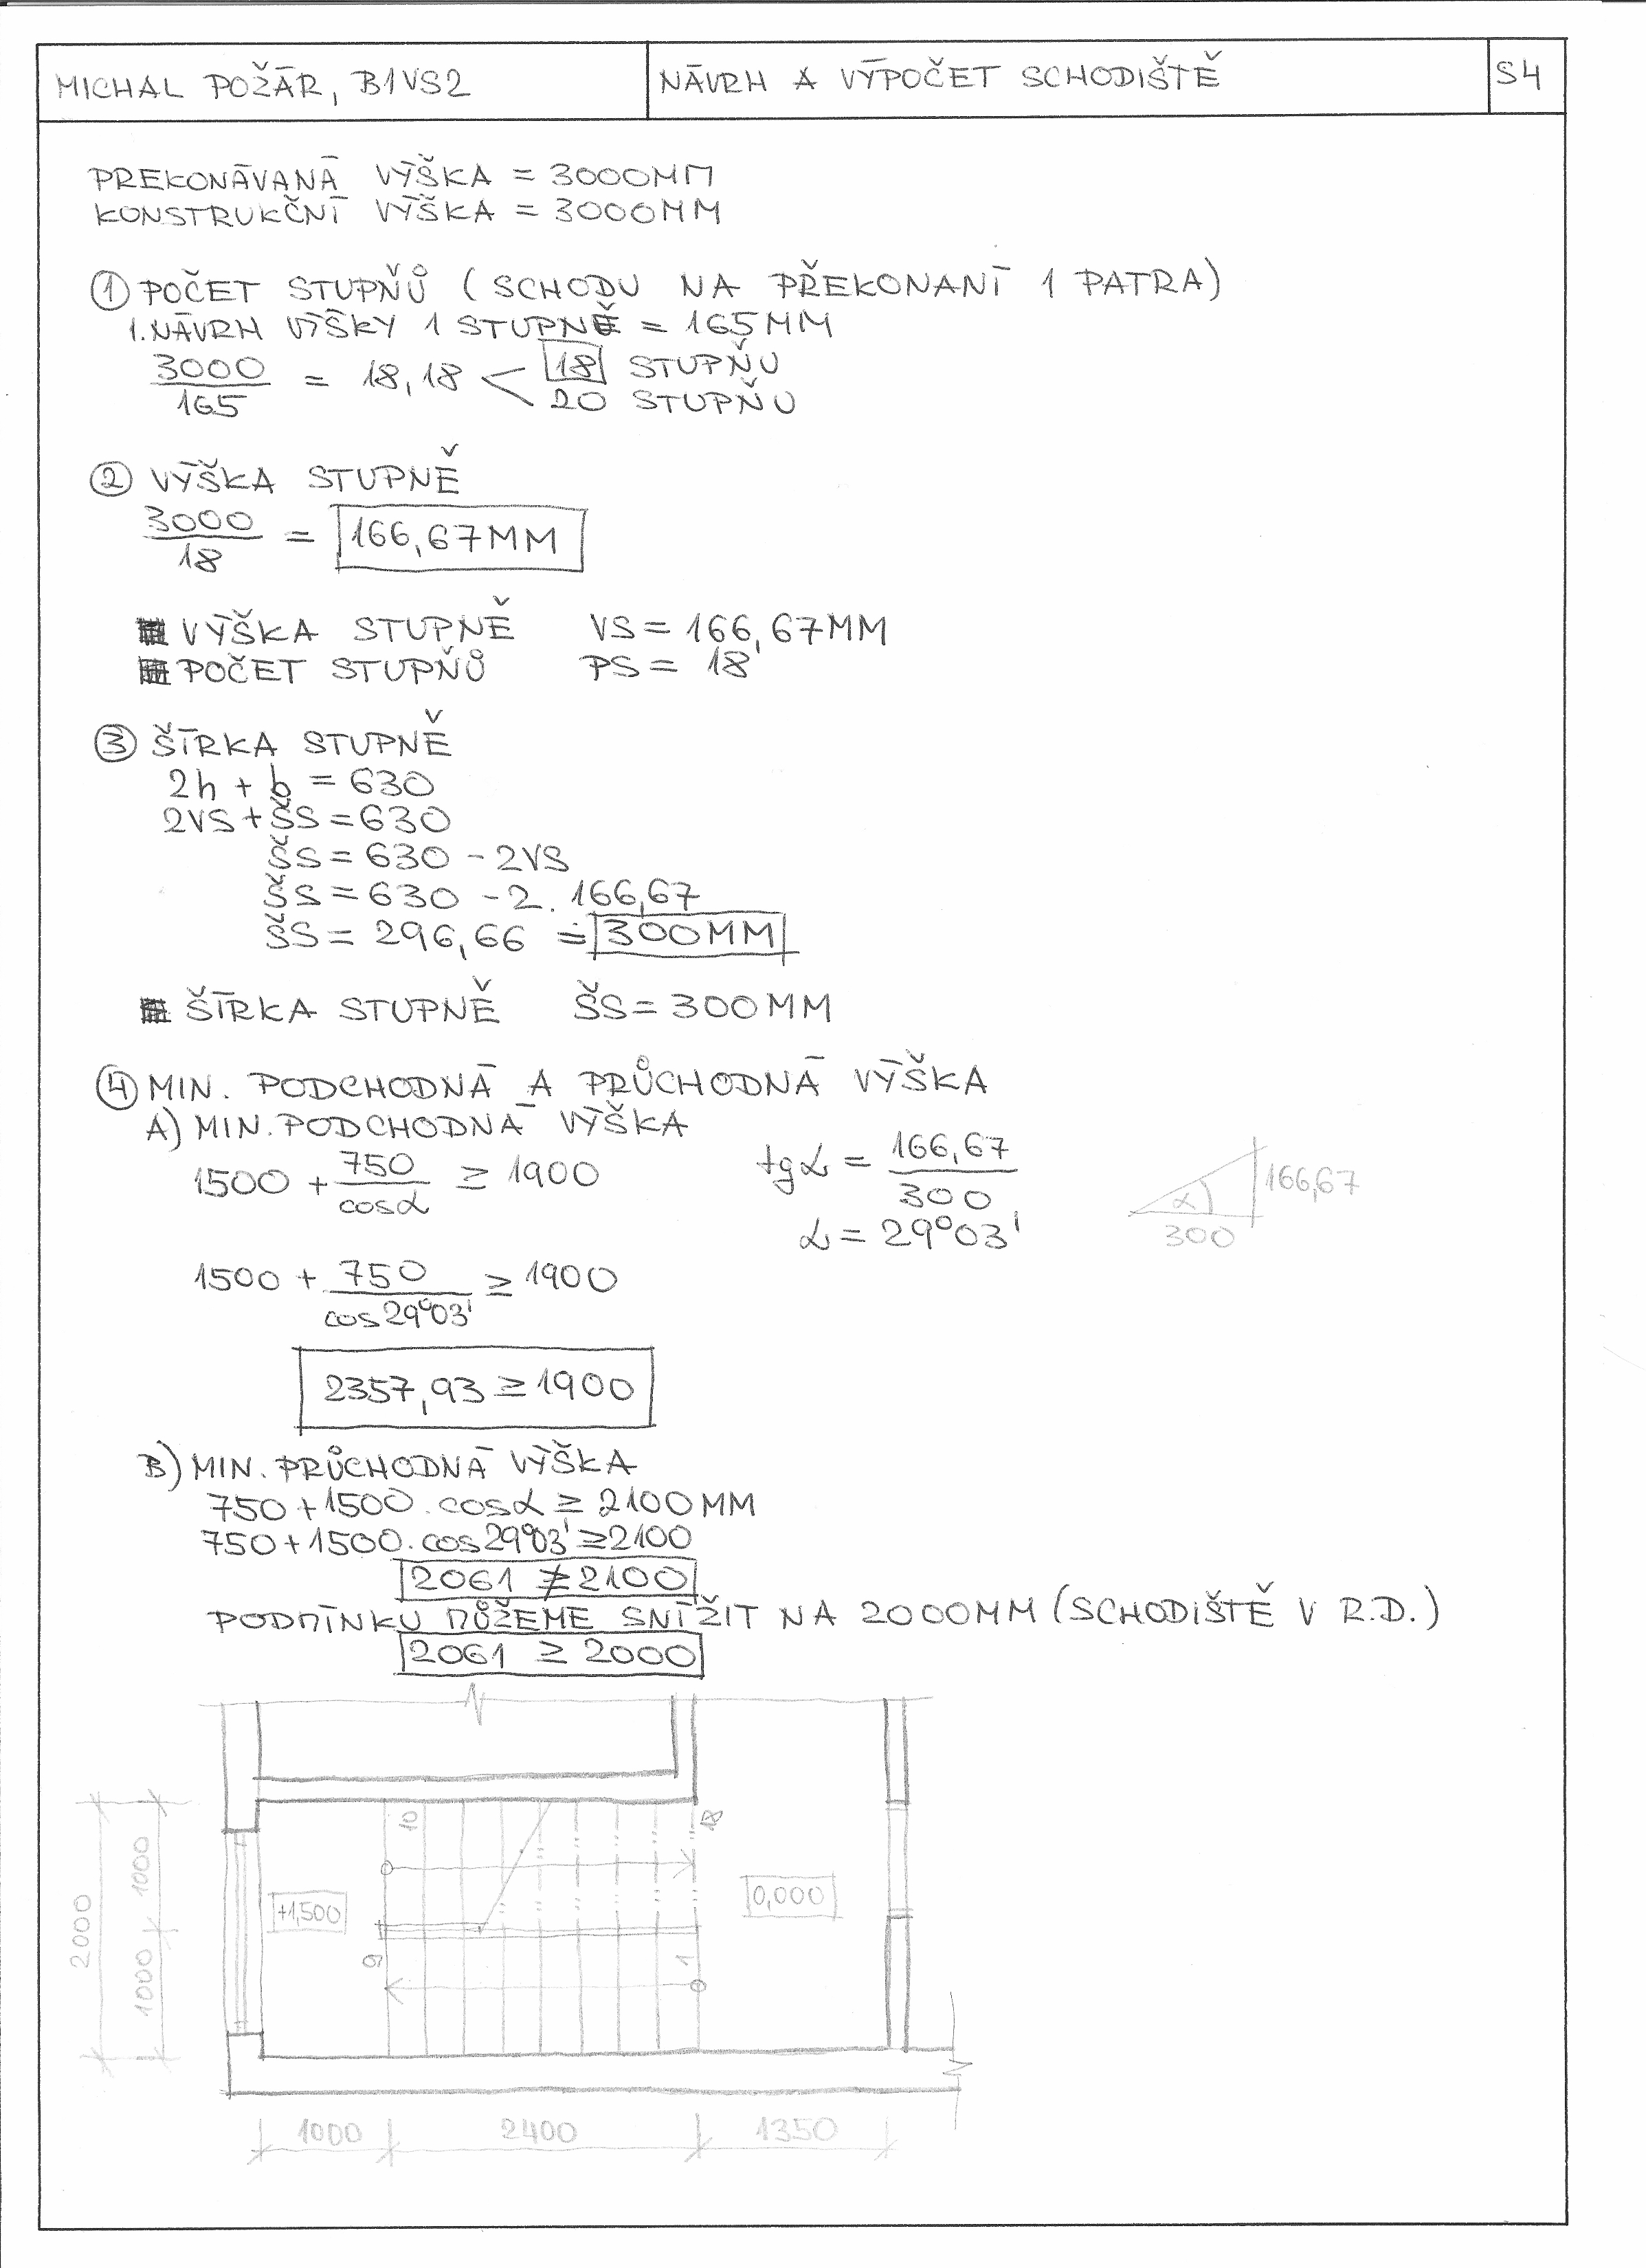 MICHAL POŽÁR, B1VS2
NÁVRH A VÝPOČET SCHODIŠTĚ
S4
PREKONÁVANÁ VÝŠKA = 3000MM
KONSTRUKČNÍ VÝŠKA = 3000MM
① POČET STUPŇŮ (SCHODU NA PŘEKONANÍ 1 PATRA)
1. NÁVRH VÝŠKY 1 STUPNĚ = 165MM
3000/165 = 18,18 < 18 STUPŇU
20 STUPŇU
② VÝŠKA STUPNĚ
3000/18 = 166,67MM
VÝŠKA STUPNĚ VS = 166,67MM
POČET STUPŇŮ PS = 18
③ ŠÍRKA STUPNĚ
2h + b = 630
2VS + ŠS = 630
ŠS = 630 - 2VS
ŠS = 630 - 2. 166,67
ŠS = 296,66 ≐ 300MM
ŠÍRKA STUPNĚ ŠS = 300MM
④ MIN. PODCHODNÁ A PRŮCHODNÁ VÝŠKA
A) MIN. PODCHODNÁ VÝŠKA
1500 + 750/cosα ≥ 1900
tgα = 166,67/300
α = 29°03'
α
166,67
300
1500 + 750/cos29°03' ≥ 1900
2357,93 ≥ 1900
B) MIN. PRŮCHODNÁ VÝŠKA
750 + 1500 . cosα ≥ 2100MM
750 + 1500. cos29°03' ≥ 2100
2061 ≱ 2100
PODMÍNKU MŮŽEME SNÍŽIT NA 2000MM (SCHODIŠTĚ V R.D.)
2061 ≥ 2000
10
18
+1,500
0,000
9
1
2000
1000
1000
1000
2400
1350